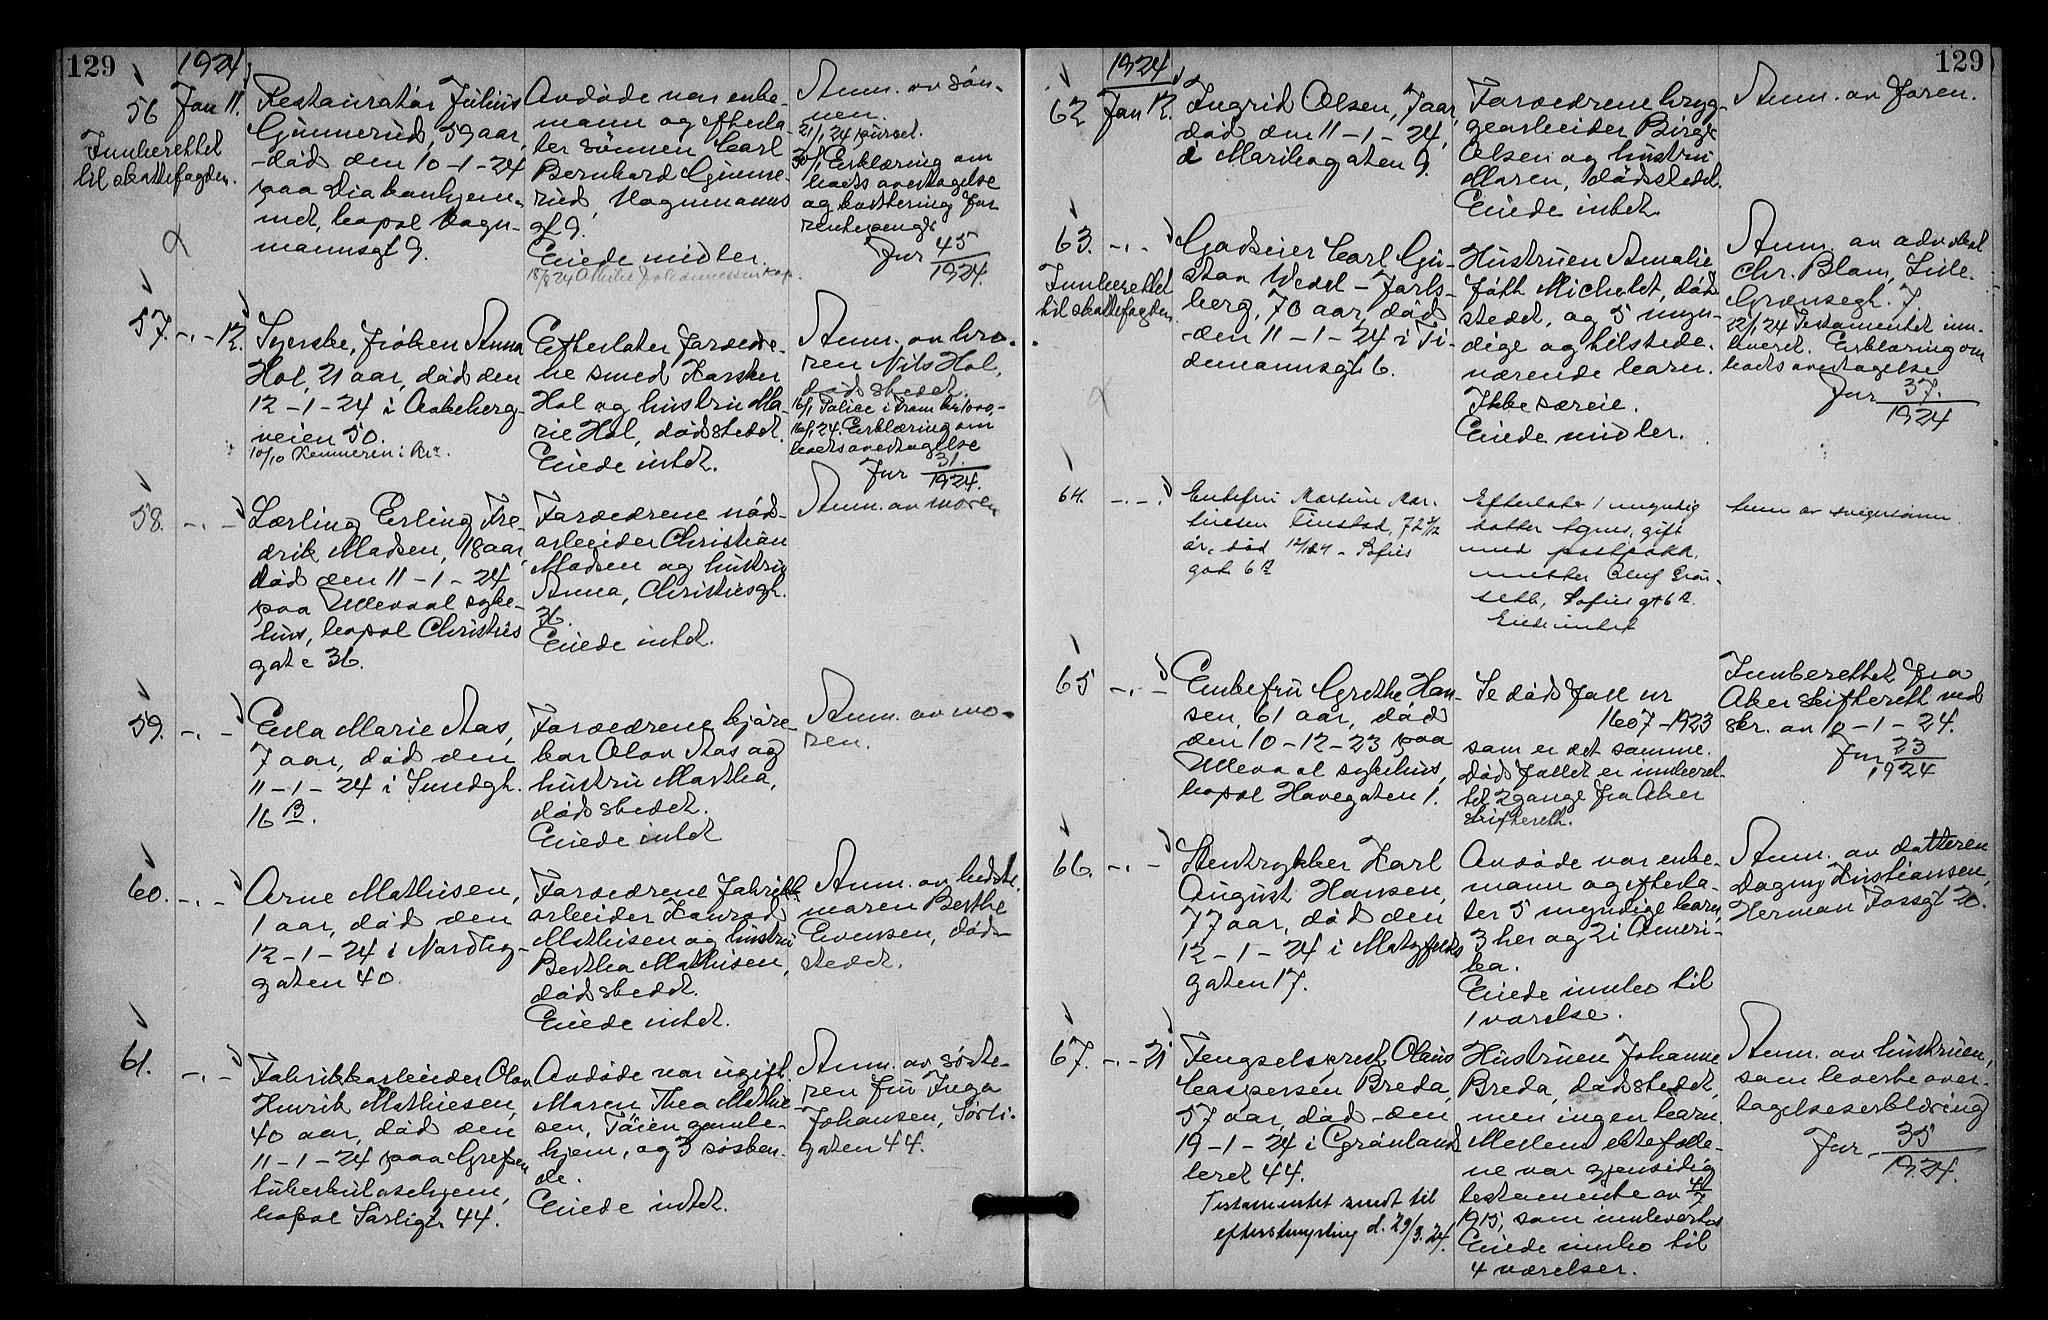 129
1924
56 Jan 11.
Innberettet
til skattefogden.
Restauratør Julius
Gunnerud, 59 aar,
død den 10-1-24
paa Diakonhjem-
met, bopæl Wagn-
mannsgt 9.
Avdøde var enke-
mann og efterla-
ter sønnen Carl
Bernhard Gunne-
rud, Wagnmanns
gt 9.
Eiede midler.
Anm. av søn-
nen.
21/1 24 purret.
30/1 Erklæring om
boets overtagelse
og kvittering for
Jnr 45
1924.
57. -"- 12.
Syerske, frøken Anna
Hol, 21 aar, død den
12-1-24 i Aakeberg-
veien 50.
10/10 Kemneren i Kr.a.
Efterlater foreldre-
ne smed Karsten
Hol og hustru Ma-
rie Hol, dødstedet.
Eiede intet.
Anm. av bro-
ren Nils Hol,
dødstedet.
16/1 Police i Fram kr 1000,-
16/1 24 Erklæring om
boets overtagelse
Jnr 31.
1924.
58. -"-
Lærling Erling Fre-
drik Madsen, 18 aar,
død den 11-1-24,
paa Ullevaal syke-
hus, bopæl Christies
gate 36.
Foreldrene nød-
arbeider Christian
Madsen og hustru
Anna, Christiesgt.
36.
Eiede intet.
Anm. av moren
59. -"-
Edla Marie Aas,
7 aar, død den
11-1-24 i Smedgt.
16 B.
Foreldrene kjøre-
kar Olav Aas og
hustru Martha,
dødstedet.
Eiede intet
Anm. av mo-
ren.
60. -"-
Arne Mathisen,
1 aar, død den
12-1-24 i Nordby-
gaten 40.
Foreldrene fabrikk-
arbeider Konrad
Mathisen og hustru
Bertha Mathisen,
dødstedet.
Eiede intet.
Anm. av beste-
moren Berthe
Evensen, død-
stedet.
61. -"-
Fabrikkarbeider Olav
Henrik Mathiesen,
40 aar, død den
11-1-24 paa Grefsen
tuberkulosehjem,
bopæl Sørligt. 44.
Avdøde var ugift.
Moren Thea Mathie-
sen, Tøien gamle-
hjem, og 3 søsken-
de.
Eiede intet.
Anm. av søste-
ren fru Inga
Johansen, Sørli-
gaten 44.
129
1924
62 Jan 12.
Ingrid Olsen, 7 aar,
død den 11-1-24,
i Maribogaten 9.
Foreldrene bryg-
gearbeider Birger
Olsen og hustru
Maren, dødstedet.
Eiede intet.
Anm. av faren.
63. -"-
Innberettet
til skattefogden.
Godseier Carl Gu-
stav Wedel-Jarls-
berg, 70 aar, død
den 11-1-24 i Ti-
demannsgt 6.
Hustruen Amalie
født Michelet, død-
stedet, og 5 myn-
dige og tilstede-
værende barn.
Ikke særeie.
Eiede midler.
Anm. av advokat
Chr. Blom, Lille
Grensegt. 7
22/1 24 Testamentet inn-
leveret. Erklæring om
boets overtagelse
Jnr 37.
1924
64. -"-
Enkefru Martine Mar-
tinsen Finstad, 72
år, død 12/1 24 - Sofies
gate 6 B
Efterlater 1 myndig
datter Agnes, gift
med postpakk-
mester Oluf
Sofies gt 6 B.
Eiede intet
Anm. av svigersønn.
65 -"-
Enkefru Grethe Han-
sen, 61 aar, død
den 10-12-23 paa
Ullevaal sykehus,
bopæl Havegaten 1.
Se dødsfall nr
1607-1923
som er det samme.
Dødsfallet er innberet-
tet 2 gange fra Aker
skifterett.
Innberettet fra
Aker skifterett ved
skr. av 10-1-24.
Jnr 23
1924
66. -"-
Stentrykker Karl
August Hansen,
77 aar, død den
12-1-24 i Motzfeldts
gaten 17.
Avdøde var enke-
mann og efterla-
ter 5 myndige barn,
3 her og 2 i Ameri-
ka.
Eiede innbo til
1 værelse.
Anm. av datteren
Dagny Kristiansen,
Herman Fossgt 20.
67. -"- 21
Fengselsprest Olaus
Caspersen Breda,
57 aar, død den
19-1-24 i Grønland-
leret 44.
Testamentet sendt til
efterstempling d. 29/3.24.
Hustruen Johanne
Breda, dødstedet,
men ingen barn.
Mellem ektefolde-
ne var gjensidig
testamente av 4/7
1915, som innleverte
Eiede innbo til
4 værelser.
Anm. av hustruen,
som leverte over-
tagelseserklæring
Jnr 35
1924.